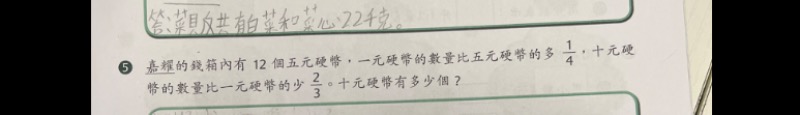 答:菜販共有白菜和菜心22千克。
5 嘉耀的錢箱內有 12 個五元硬幣,一元硬幣的數量比五元硬幣的多 1/4,十元硬
幣的數量比一元硬幣的少 2/3。十元硬幣有多少個?